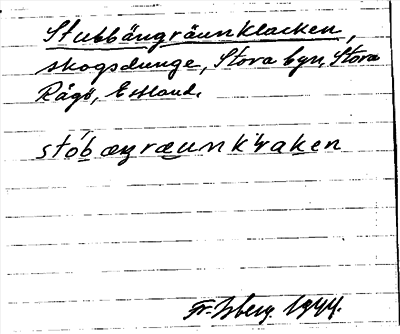 Stubbängräunklacken,
skogsdunge, Stora byn, Stora
Rågö, Estland.
stób æŋræunk'raken
Fr. Isberg 1944.